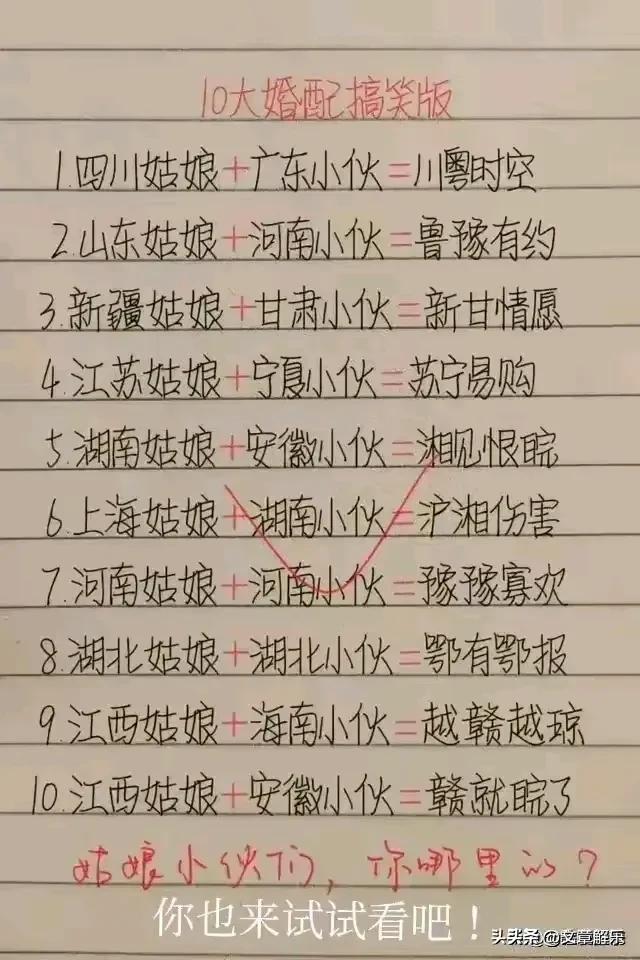 10大婚配搞笑版
1.四川姑娘+广东小伙=川粤时空
2.山东姑娘+河南小伙=鲁豫有约
3.新疆姑娘+甘肃小伙=新甘情愿
4.江苏姑娘+宁夏小伙=苏宁易购
5.湖南姑娘+安徽小伙=湘见恨皖
6.上海姑娘+湖南小伙=沪湘伤害
7.河南姑娘+河南小伙=豫豫寡欢
8.湖北姑娘+湖北小伙=鄂有鄂报
9.江西姑娘+海南小伙=越赣越琼
10.江西姑娘+安徽小伙=赣就皖了
姑娘小伙们,你哪里的?
你也来试试看吧!
头条@文章解乐